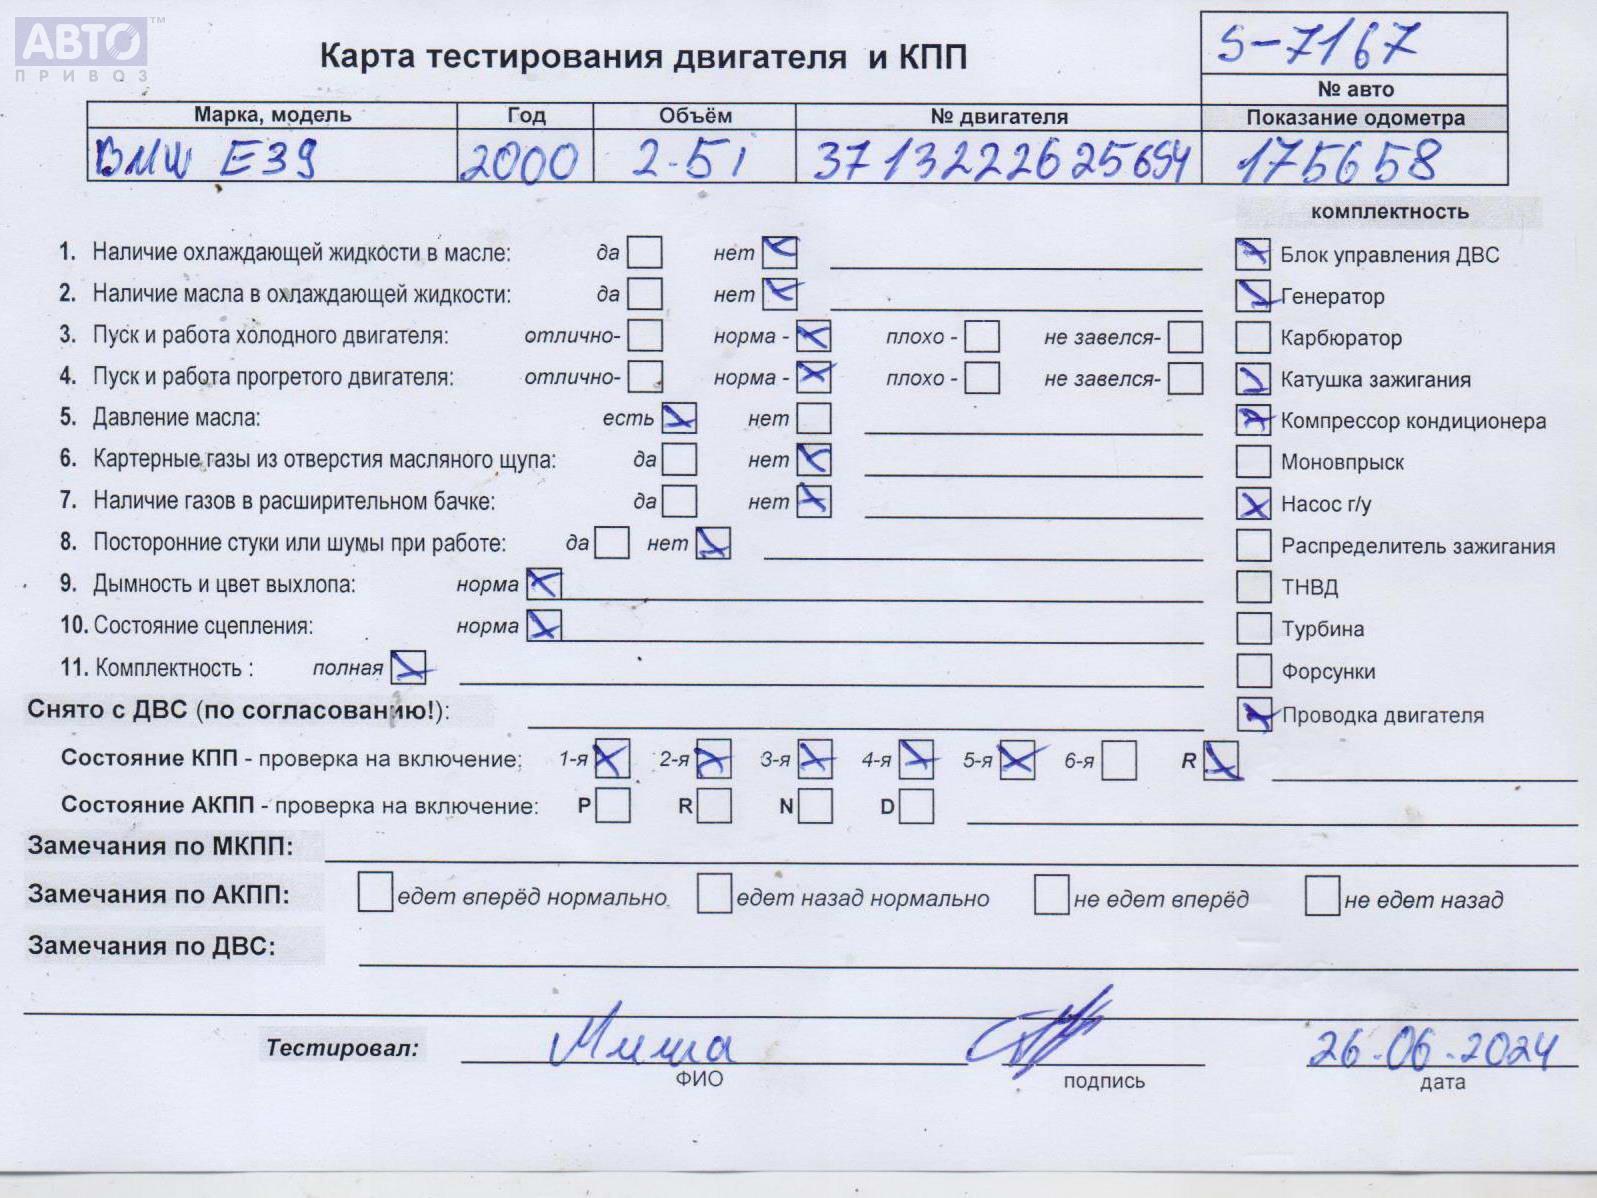 АВТО™
ПРИВОЗ
Карта тестирования двигателя и КПП
S-7167
№ авто
Марка, модель Год Объём № двигателя Показание одометра
BMW E39 2000 2.5i 3713222625694 175658
комплектность
1. Наличие охлаждающей жидкости в масле: да нет Блок управления ДВС
2. Наличие масла в охлаждающей жидкости: да нет Генератор
3. Пуск и работа холодного двигателя: отлично- норма - плохо - не завелся- Карбюратор
4. Пуск и работа прогретого двигателя: отлично- норма - плохо - не завелся- Катушка зажигания
5. Давление масла: есть нет Компрессор кондиционера
6. Картерные газы из отверстия масляного щупа: да нет Моновпрыск
7. Наличие газов в расширительном бачке: да нет Насос г/у
8. Посторонние стуки или шумы при работе: да нет Распределитель зажигания
9. Дымность и цвет выхлопа: норма ТНВД
10. Состояние сцепления: норма Турбина
11. Комплектность : полная Форсунки
Снято с ДВС (по согласованию!): Проводка двигателя
Состояние КПП - проверка на включение: 1-я 2-я 3-я 4-я 5-я 6-я R
Состояние АКПП - проверка на включение: P R N D
Замечания по МКПП:
Замечания по АКПП: едет вперёд нормально едет назад нормально не едет вперёд не едет назад
Замечания по ДВС:
Тестировал: Миша 26.06.2024
ФИО подпись дата